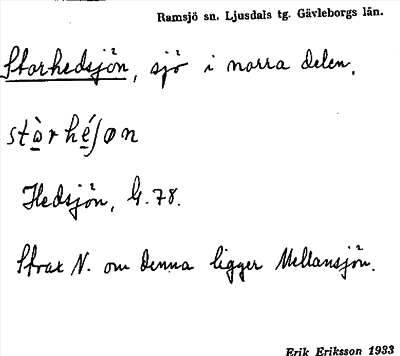 Ramsjö sn. Ljusdals tg. Gävleborgs län.
Storhedsjön, sjö i norra delen.
stò̱rhé̱ʃøn
Hedsjön, G. 78.
Strax N. om denna ligger Mellansjön.
Erik Eriksson 1933